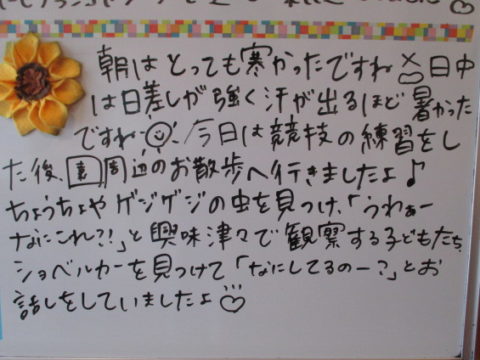 朝はとっても寒かったですね 日中
は日差しが強く汗が出るほど暑かった
ですね 今日は競技の練習をし
た後、園周辺のお散歩へ行きましたよ♪
ちょうちょやゲジゲジの虫を見つけ、「うわぁー
なにこれ?!」と興味津々で観察する子どもたち
ショベルカーを見つけて「なにしてるのー?」とお
話しをしていましたよ♡